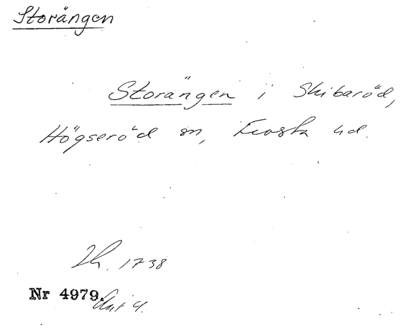 Storängen
Storängen i Skibaröd,
Högseröd sn, Frosta hd.
Lh. 1738
Nr 4979. Akt 4.